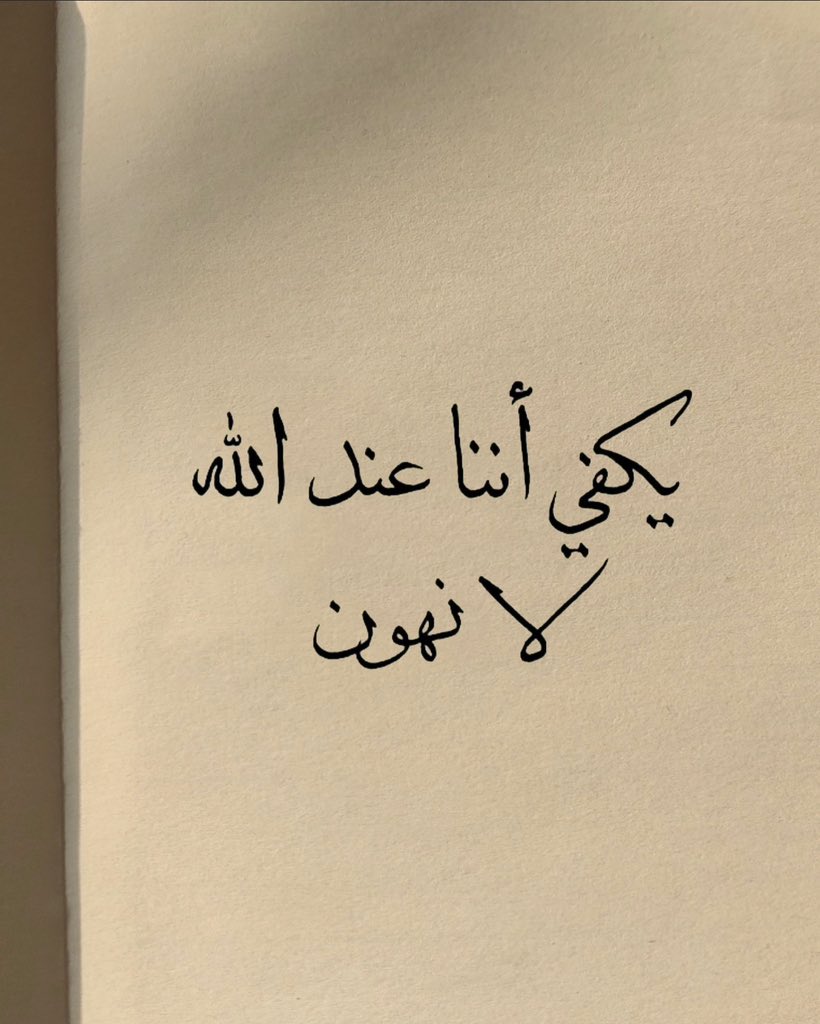 يكفي أننا عند الله
لا نهون